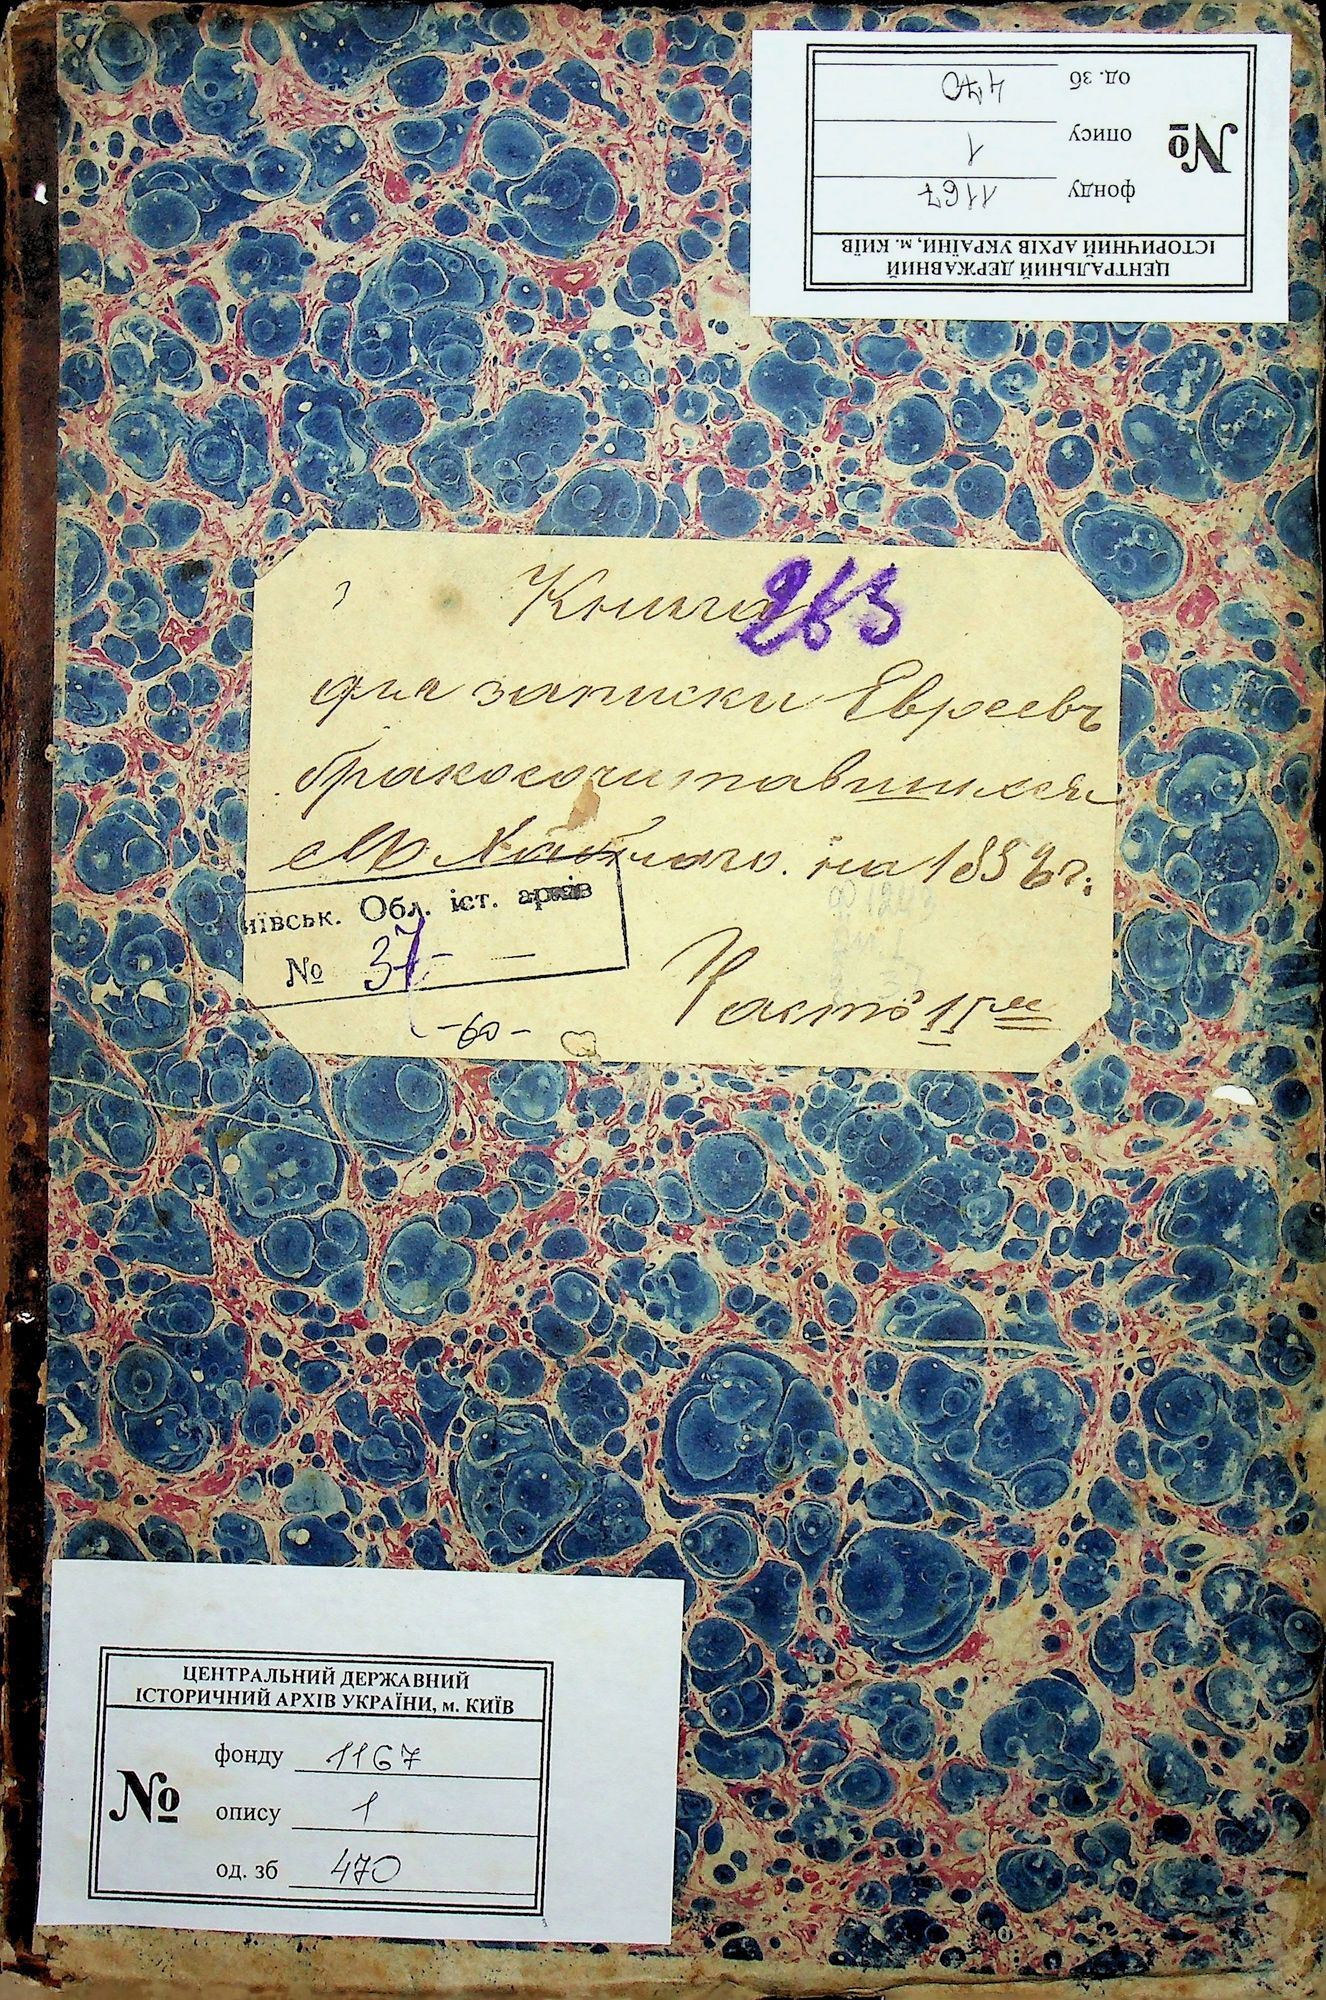 ЦЕНТРАЛЬНИЙ ДЕРЖАВНИЙ
ІСТОРИЧНИЙ АРХІВ УКРАЇНИ, м. КИЇВ
№
фонду 1167
опису 1
од. зб 470
Книга
263
для записки Евреевъ
бракосочитавшихся
на 185
иївськ. Обл. іст. архів
№ 37
Часть II
-60-
ЦЕНТРАЛЬНИЙ ДЕРЖАВНИЙ
ІСТОРИЧНИЙ АРХІВ УКРАЇНИ, м. КИЇВ
№
фонду 1167
опису 1
од. зб 470